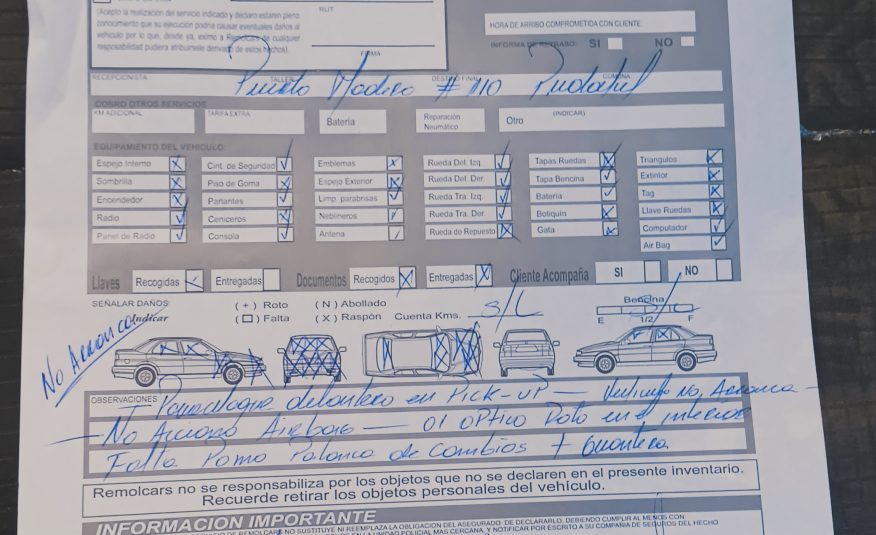 (Acepto la realización del servicio indicado y declaro estar en pleno
conocimiento que su ejecución podría causar eventuales daños al
vehículo por lo que, desde ya, eximo a Remolcars de cualquier
responsabilidad pudiera atribuírsele derivado de estos hechos).
RUT
FIRMA
HORA DE ARRIBO COMPROMETIDA CON CLIENTE
INFORMA DE RETRASO: SI NO
RECEPCIONISTA TALLER DESTINO FINAL COMUNA
Puerto Madero # 110 Pudahuel
COBRO OTROS SERVICIOS
KM ADICIONAL TARIFA EXTRA Batería Reparación Neumático Otro (INDICAR)
EQUIPAMIENTO DEL VEHICULO:
Espejo Interno Cint. de Seguridad Emblemas Rueda Del. Izq. Tapas Ruedas Triangulos
Sombrilla Piso de Goma Espejo Exterior Rueda Del. Der. Tapa Bencina Extintor
Encendedor Parlantes Limp. parabrisas Rueda Tra. Izq. Batería Tag
Radio Ceniceros Neblineros Rueda Tra. Der. Botiquín Llave Ruedas
Panel de Radio Consola Antena Rueda de Repuesto Gata Computador
Air Bag
Llaves Recogidas Entregadas Documentos Recogidos Entregadas Cliente Acompaña SI NO
SEÑALAR DAÑOS: (+) Roto (N) Abollado Bencina
Indicar (□) Falta (X) Raspón Cuenta Kms. S/L E 1/2 F
No Arranca
OBSERVACIONES
Parachoque delantero en Pick-UP — Vehiculo No, Arranca —
— No Acciono Airbag — 01 optico Roto en el interior
Falta Pomo Palanca de Cambios + Guantera
Remolcars no se responsabiliza por los objetos que no se declaren en el presente inventario.
Recuerde retirar los objetos personales del vehículo.
INFORMACION IMPORTANTE
NO SUSTITUYE NI REEMPLAZA LA OBLIGACION DEL ASEGURADO DE DECLARARLO, DEBIENDO CUMPLIR AL MENOS CON:
UNIDAD POLICIAL MAS CERCANA, Y NOTIFICAR POR ESCRITO A SU COMPAÑIA DE SEGUROS DEL HECHO